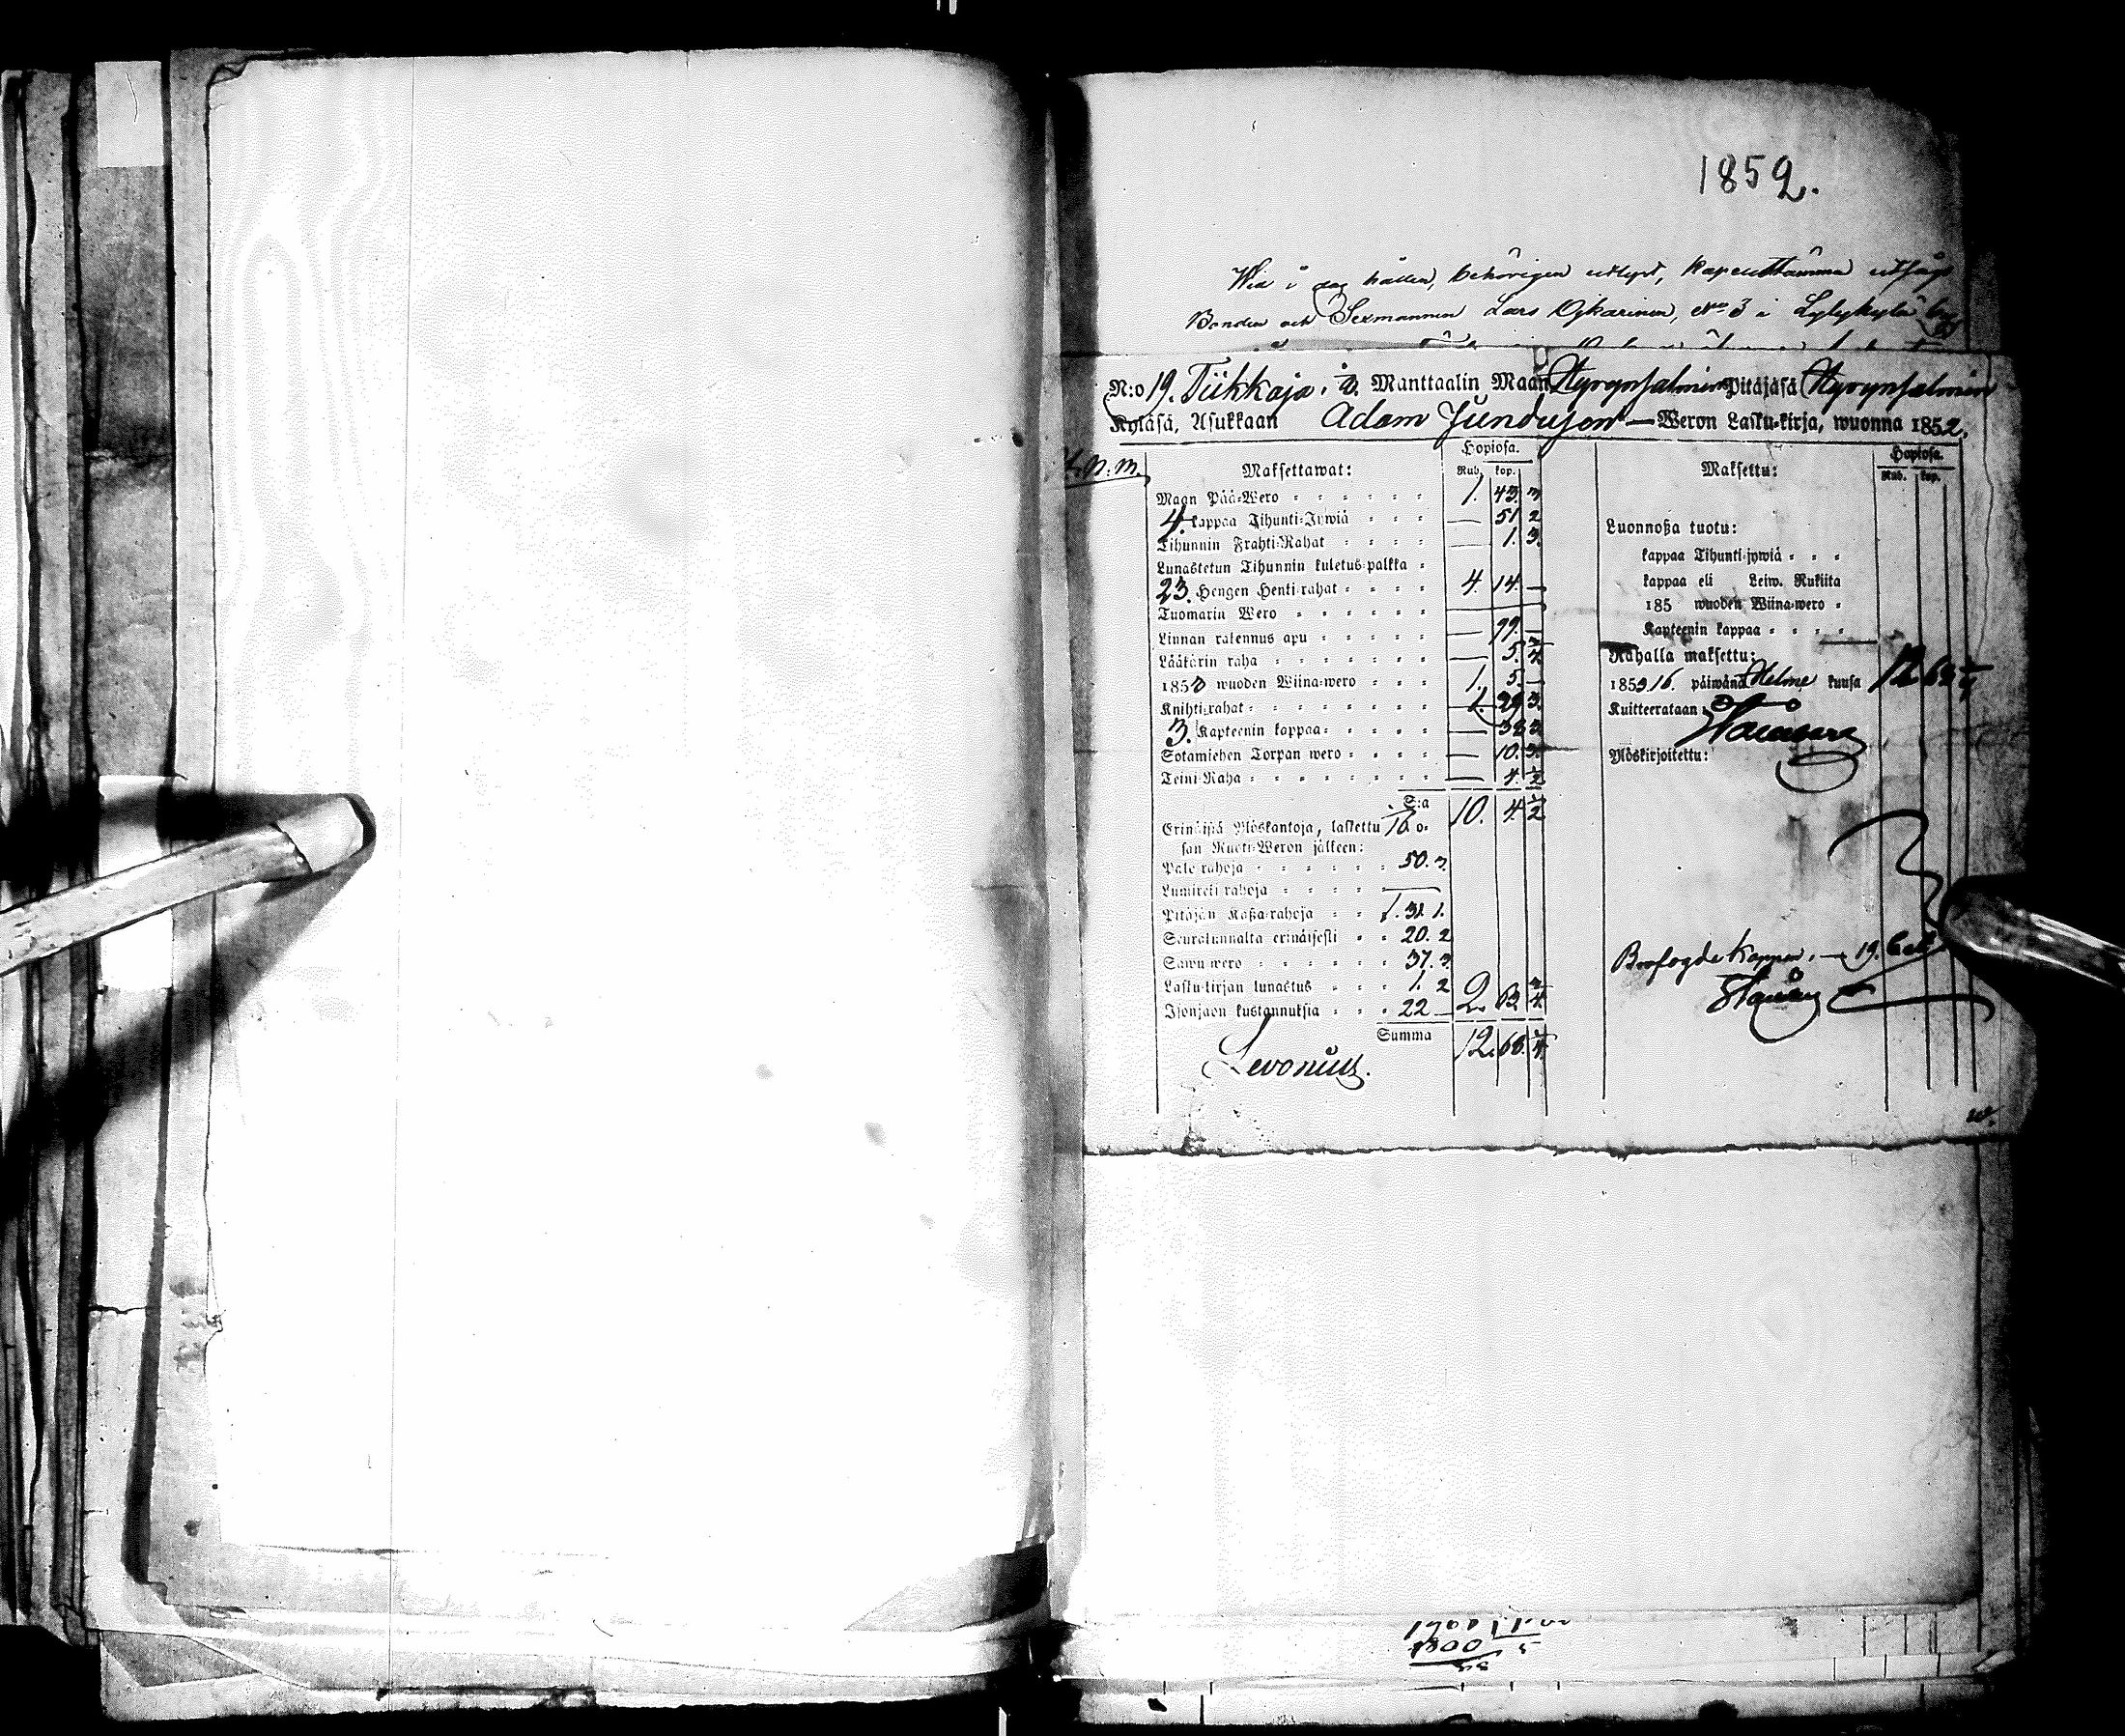 1852.
Wid i dag hållen, behörigen utlyst,
Bonden och Sexmannen Lars Oikarinen, No 3 i Lylykylä by
N:o 19. Tiikkaja, Manttaalin Maan Hyrynsalmen Pitäjäsä Hyrynsalmen
Kyläsä, Asukkaan Adam Junduson — Weron Lasku-kirja, wuonna 1852.
Hopiosa.
Maksettawat: Rub. kop.
Maan Pää-Wero 1. 43. 3
4. kappaa Tihunti-Jywiä — 51 2
Tihunnin Frahti-Rahat — 1. 3.
Lunastetun Tihunnin kuletus-palkka
23. Hengen Henki-rahat 4. 14. —
Tuomarin Wero
Linnan rakennus apu — 99. —
Lääkärin raha — 5.
185 wuoden Wiina-wero 1. 5. —
Knihti-rahat 1. 3.
3. Kapteenin kappaa — 38 3
Sotamiehen Torpan wero — 10. 3.
Teini-Raha — 4. ½
S:a 10. 4 ½
Erinäisiä Ylöskantoja, laskettu 16 o-
san Ruoti-Weron jälkeen:
Palo rahoja 50. 3.
Lumireki rahoja —
Pitäjän Kaßa-rahoja 1. 31 1.
Seurakunnalta erinäisesti 20. 2
Sawu-wero 37. 3.
Lasku-kirjan lunastus 1. 2
Isonjaon kustannuksia 22 — 2. 63. ¾
Summa 12. 68. ¼
Levonius.
Hopiosa.
Maksettu: Rub. kop.
Luonnoßa tuotu:
kappaa Tihunti-jywiä
kappaa eli Leiw. Rukiita
185 wuoden Wiina-wero
Kapteenin kappaa
Rahalla maksettu:
1853 16. päiwänä Helme kuusa 12 68 ¼
Kuitteerataan
Ylöskirjoitettu:
Brofogde Kappar. — 19.